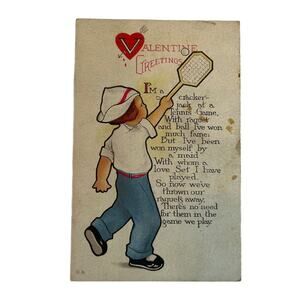 VALENTINE
GREETINGS
I'm a
cracker-
jack at a
Tennis Game,
With raquet
and ball I've won
much fame;
But I've been
won myself by
a maid
With whom a
love Set I have
played.
So now we've
thrown our
raquets away,
There's no need
for them in the
game we play.